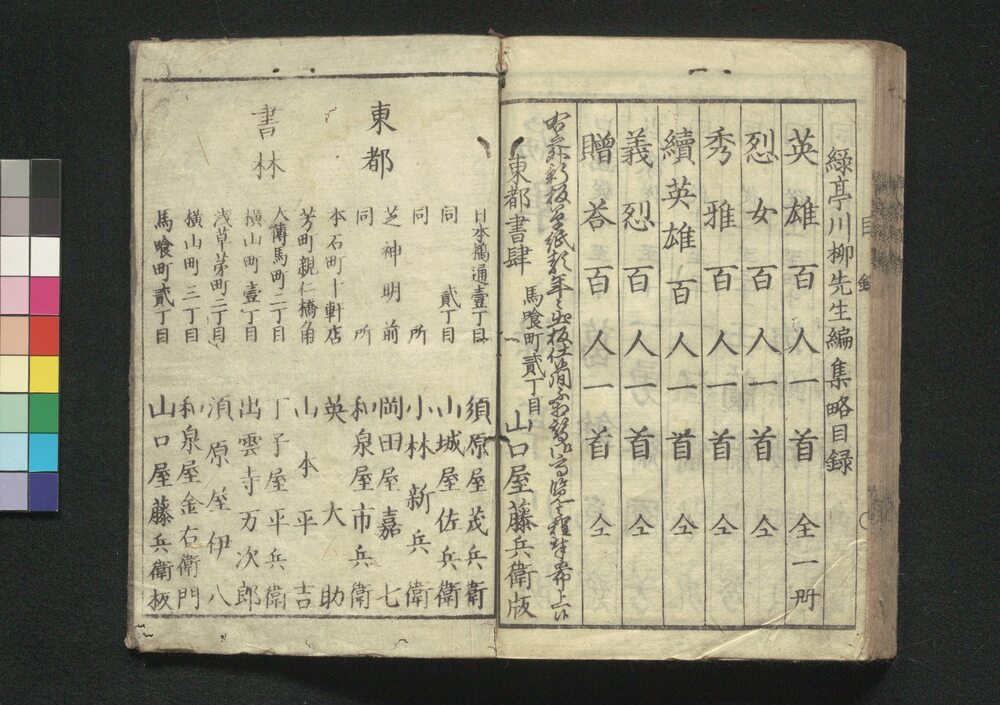 緑亭川柳先生編集略目録
目録
英雄百人一首 全一册
烈女百人一首 仝
秀雅百人一首 仝
續英雄百人一首 仝
義烈百人一首 仝
贈荅百人一首 仝
東都書肆 馬喰町貳丁目 山口屋藤兵衛版
東都
書林
日本橋通壹丁目 須原屋茂兵衛
同 貳丁目 山城屋佐兵衛
同所 小林新兵衛
芝神明前 岡田屋嘉七
同所 和泉屋市兵衛
本石町十軒店 英大助
芳町親仁橋角 山本平吉
大傳馬町二丁目 丁子屋平兵衛
横山町壹丁目 出雲寺万次郎
浅草茅町二丁目 須原屋伊八
横山町三丁目 和泉屋金右衛門
馬喰町貳丁目 山口屋藤兵衛板